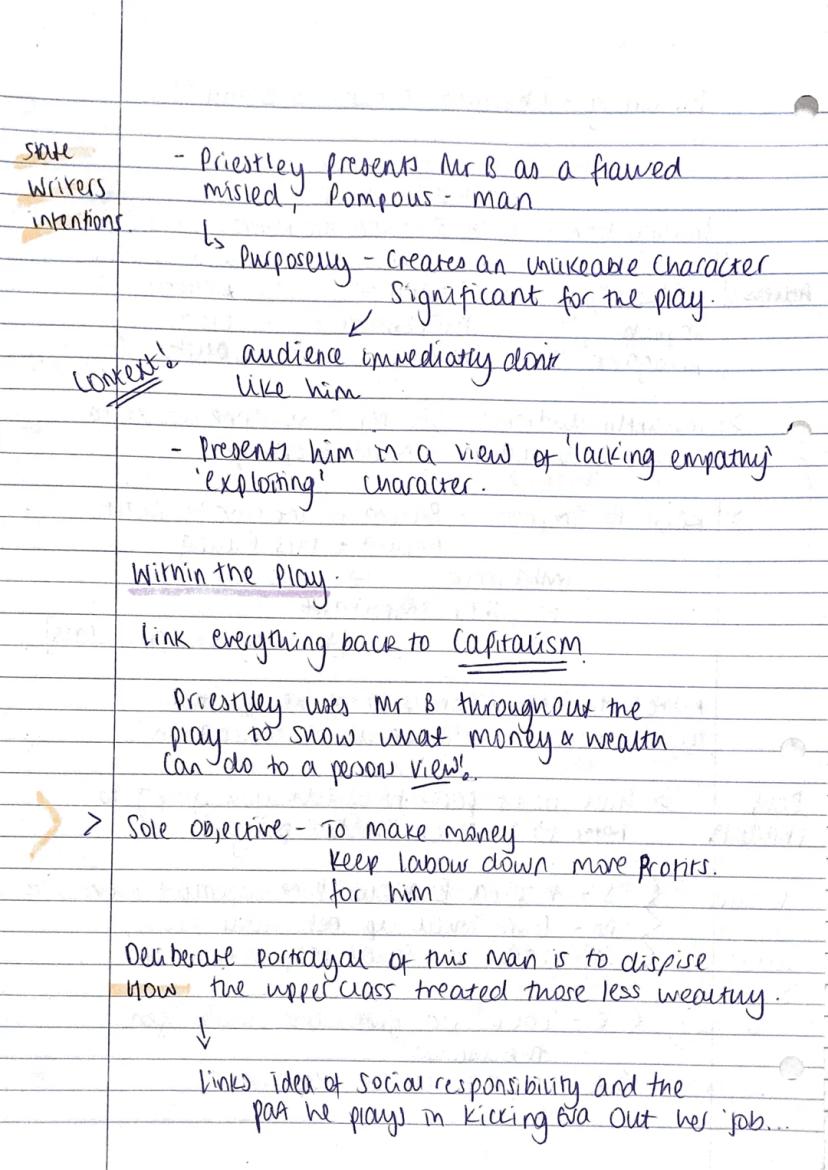 state
writers
intentions.
- Priestley presents Mr B as a flawed
misled, Pompous - man
↳ Purposelly - Creates an unlikeable Character
Significant for the play.
↙
Context!
audience immediatly dont
like him
- Presents him in a view of 'lacking empathy'
'exploiting' character.
Within the Play.
Link everything back to Capitalism.
Priestley uses Mr B throughout the
play to show what money & wealth
can do to a persons view!.
> Sole Objective - To make money
keep labour down more profits.
for him
Deliberate portrayal of this man is to dispise
How the upper class treated those less wealthy.
↓
Links idea of social responsibility and the
part he plays in kicking Eva out her job...